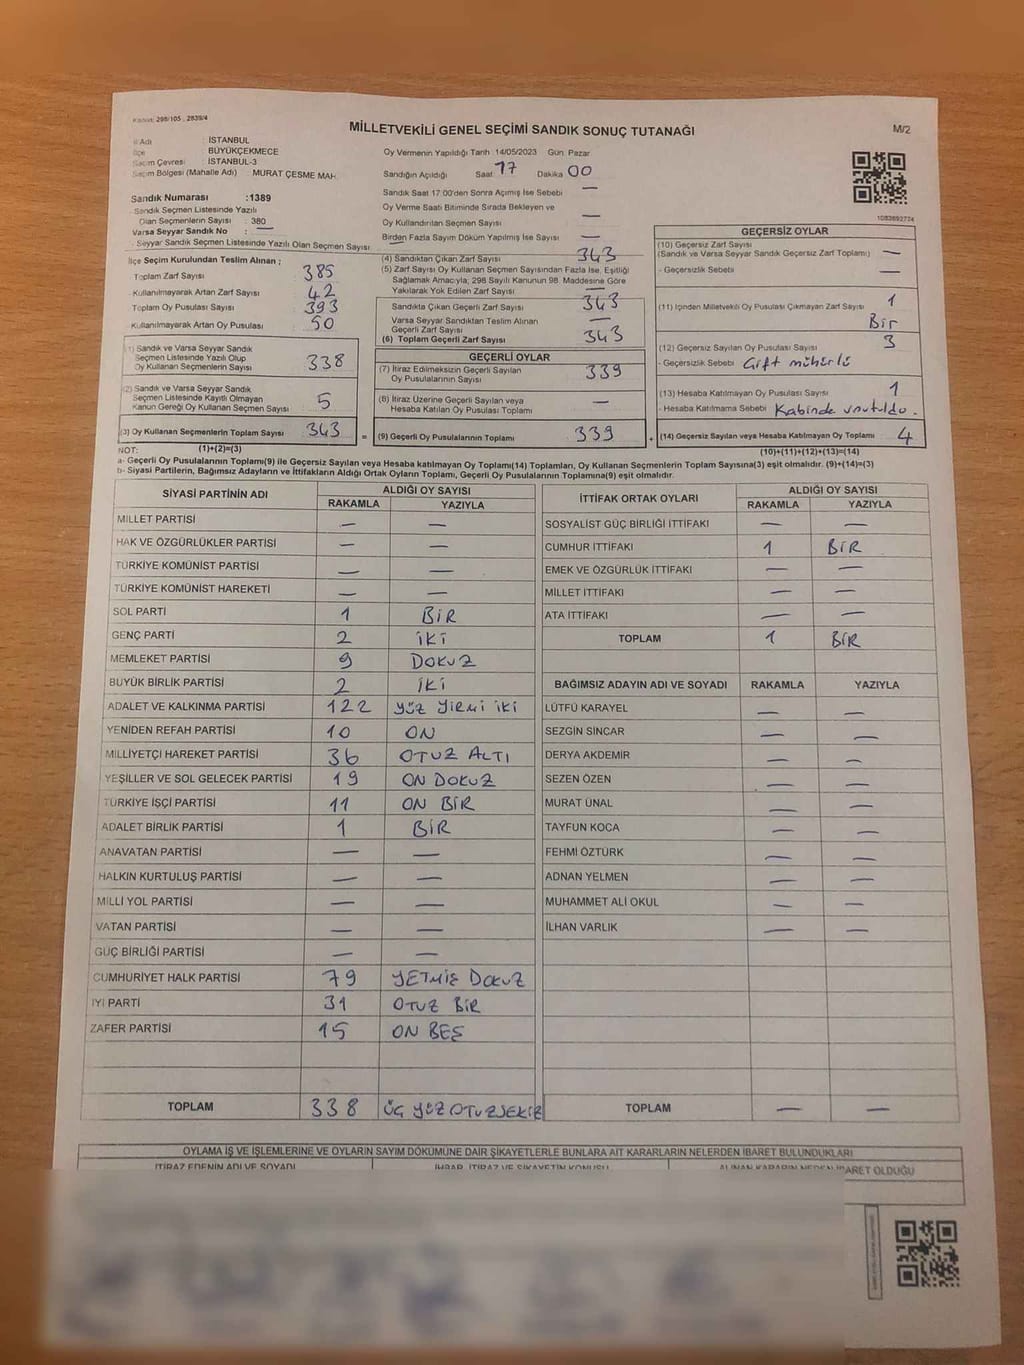 Kanun: 298/105 , 2839/4
MİLLETVEKİLİ GENEL SEÇİMİ SANDIK SONUÇ TUTANAĞI
M/2
İl Adı : İSTANBUL
İlçe : BÜYÜKÇEKMECE
Seçim Çevresi : İSTANBUL-3
Seçim Bölgesi (Mahalle Adı) : MURAT ÇEŞME MAH.
Sandık Numarası :1389
Sandık Seçmen Listesinde Yazılı
Olan Seçmenlerin Sayısı : 380
Varsa Seyyar Sandık No : —
Seyyar Sandık Seçmen Listesinde Yazılı Olan Seçmen Sayısı:
İlçe Seçim Kurulundan Teslim Alınan ;
Toplam Zarf Sayısı 385
Kullanılmayarak Artan Zarf Sayısı 42
Toplam Oy Pusulası Sayısı 393
Kullanılmayarak Artan Oy Pusulası 50
(1) Sandık ve Varsa Seyyar Sandık
Seçmen Listesinde Yazılı Olup
Oy Kullanan Seçmenlerin Sayısı 338
(2) Sandık ve Varsa Seyyar Sandık
Seçmen Listesinde Kayıtlı Olmayan
Kanun Gereği Oy Kullanan Seçmen Sayısı 5
(3) Oy Kullanan Seçmenlerin Toplam Sayısı 343
Oy Vermenin Yapıldığı Tarih 14/05/2023 Gün Pazar
Sandığın Açıldığı Saat 17 Dakika 00
Sandık Saat 17:00'den Sonra Açılmış İse Sebebi —
Oy Verme Saati Bitiminde Sırada Bekleyen ve
Oy Kullandırılan Seçmen Sayısı —
Birden Fazla Sayım Döküm Yapılmış İse Sayısı —
(4) Sandıktan Çıkan Zarf Sayısı 343
(5) Zarf Sayısı Oy Kullanan Seçmen Sayısından Fazla İse, Eşitliği
Sağlamak Amacıyla; 298 Sayılı Kanunun 98. Maddesine Göre
Yakılarak Yok Edilen Zarf Sayısı —
Sandıkta Çıkan Geçerli Zarf Sayısı 343
Varsa Seyyar Sandıktan Teslim Alınan
Geçerli Zarf Sayısı —
(6) Toplam Geçerli Zarf Sayısı 343
GEÇERLİ OYLAR
(7) İtiraz Edilmeksizin Geçerli Sayılan
Oy Pusulalarının Sayısı 339
(8) İtiraz Üzerine Geçerli Sayılan veya
Hesaba Katılan Oy Pusulası Toplamı —
= (9) Geçerli Oy Pusulalarının Toplamı 339
1083892774
GEÇERSİZ OYLAR
(10) Geçersiz Zarf Sayısı
(Sandık ve Varsa Seyyar Sandık Geçersiz Zarf Toplamı) —
- Geçersizlik Sebebi —
(11) İçinden Milletvekili Oy Pusulası Çıkmayan Zarf Sayısı 1
Bir
(12) Geçersiz Sayılan Oy Pusulası Sayısı 3
- Geçersizlik Sebebi Çift mühürlü
(13) Hesaba Katılmayan Oy Pusulası Sayısı 1
- Hesaba Katılmama Sebebi Kabinde unutuldu.
+ (14) Geçersiz Sayılan veya Hesaba Katılmayan Oy Toplamı 4
NOT: (1)+(2)=(3) (10)+(11)+(12)+(13)=(14)
a- Geçerli Oy Pusulalarının Toplamı(9) ile Geçersiz Sayılan veya Hesaba katılmayan Oy Toplamı(14) Toplamları, Oy Kullanan Seçmenlerin Toplam Sayısına(3) eşit olmalıdır. (9)+(14)=(3)
b- Siyasi Partilerin, Bağımsız Adayların ve İttifakların Aldığı Ortak Oyların Toplamı, Geçerli Oy Pusulalarının Toplamına(9) eşit olmalıdır.
SİYASİ PARTİNİN ADI ALDIĞI OY SAYISI
RAKAMLA YAZIYLA
MİLLET PARTİSİ — —
HAK VE ÖZGÜRLÜKLER PARTİSİ — —
TÜRKİYE KOMÜNİST PARTİSİ — —
TÜRKİYE KOMÜNİST HAREKETİ — —
SOL PARTİ 1 BİR
GENÇ PARTİ 2 İKİ
MEMLEKET PARTİSİ 9 DOKUZ
BÜYÜK BİRLİK PARTİSİ 2 İKİ
ADALET VE KALKINMA PARTİSİ 122 YÜZ YİRMİ İKİ
YENİDEN REFAH PARTİSİ 10 ON
MİLLİYETÇİ HAREKET PARTİSİ 36 OTUZ ALTI
YEŞİLLER VE SOL GELECEK PARTİSİ 19 ON DOKUZ
TÜRKİYE İŞÇİ PARTİSİ 11 ON BİR
ADALET BİRLİK PARTİSİ 1 BİR
ANAVATAN PARTİSİ — —
HALKIN KURTULUŞ PARTİSİ — —
MİLLİ YOL PARTİSİ — —
VATAN PARTİSİ — —
GÜÇ BİRLİĞİ PARTİSİ — —
CUMHURİYET HALK PARTİSİ 79 YETMİŞ DOKUZ
İYİ PARTİ 31 OTUZ BİR
ZAFER PARTİSİ 15 ON BEŞ
TOPLAM 338 ÜÇ YÜZ OTUZSEKİZ
İTTİFAK ORTAK OYLARI ALDIĞI OY SAYISI
RAKAMLA YAZIYLA
SOSYALİST GÜÇ BİRLİĞİ İTTİFAKI — —
CUMHUR İTTİFAKI 1 BİR
EMEK VE ÖZGÜRLÜK İTTİFAKI — —
MİLLET İTTİFAKI — —
ATA İTTİFAKI — —
TOPLAM 1 BİR
BAĞIMSIZ ADAYIN ADI VE SOYADI RAKAMLA YAZIYLA
LÜTFÜ KARAYEL — —
SEZGİN SİNCAR — —
DERYA AKDEMİR — —
SEZEN ÖZEN — —
MURAT ÜNAL — —
TAYFUN KOCA — —
FEHMİ ÖZTÜRK — —
ADNAN YELMEN — —
MUHAMMET ALİ OKUL — —
İLHAN VARLIK — —
TOPLAM — —
OYLAMA İŞ VE İŞLEMLERİNE VE OYLARIN SAYIM DÖKÜMÜNE DAİR ŞİKAYETLERLE BUNLARA AİT KARARLARIN NELERDEN İBARET BULUNDUKLARI
İTİRAZ EDENİN ADI VE SOYADI İHBAR, İTİRAZ VE ŞİKAYETİN KONUSU ALINAN KARARIN NEDEN İBARET OLDUĞU